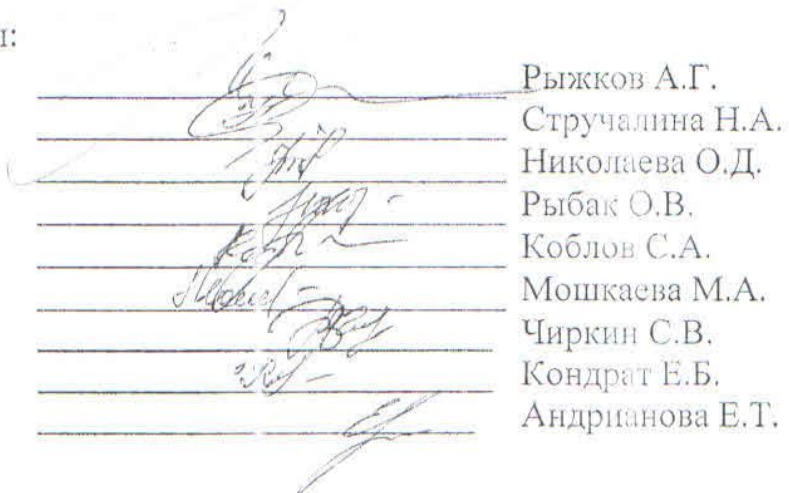 Рыжков А.Г.
Стручалина Н.А.
Николаева О.Д.
Рыбак О.В.
Коблов С.А.
Мошкаева М.А.
Чиркин С.В.
Кондрат Е.Б.
Андрианова Е.Т.